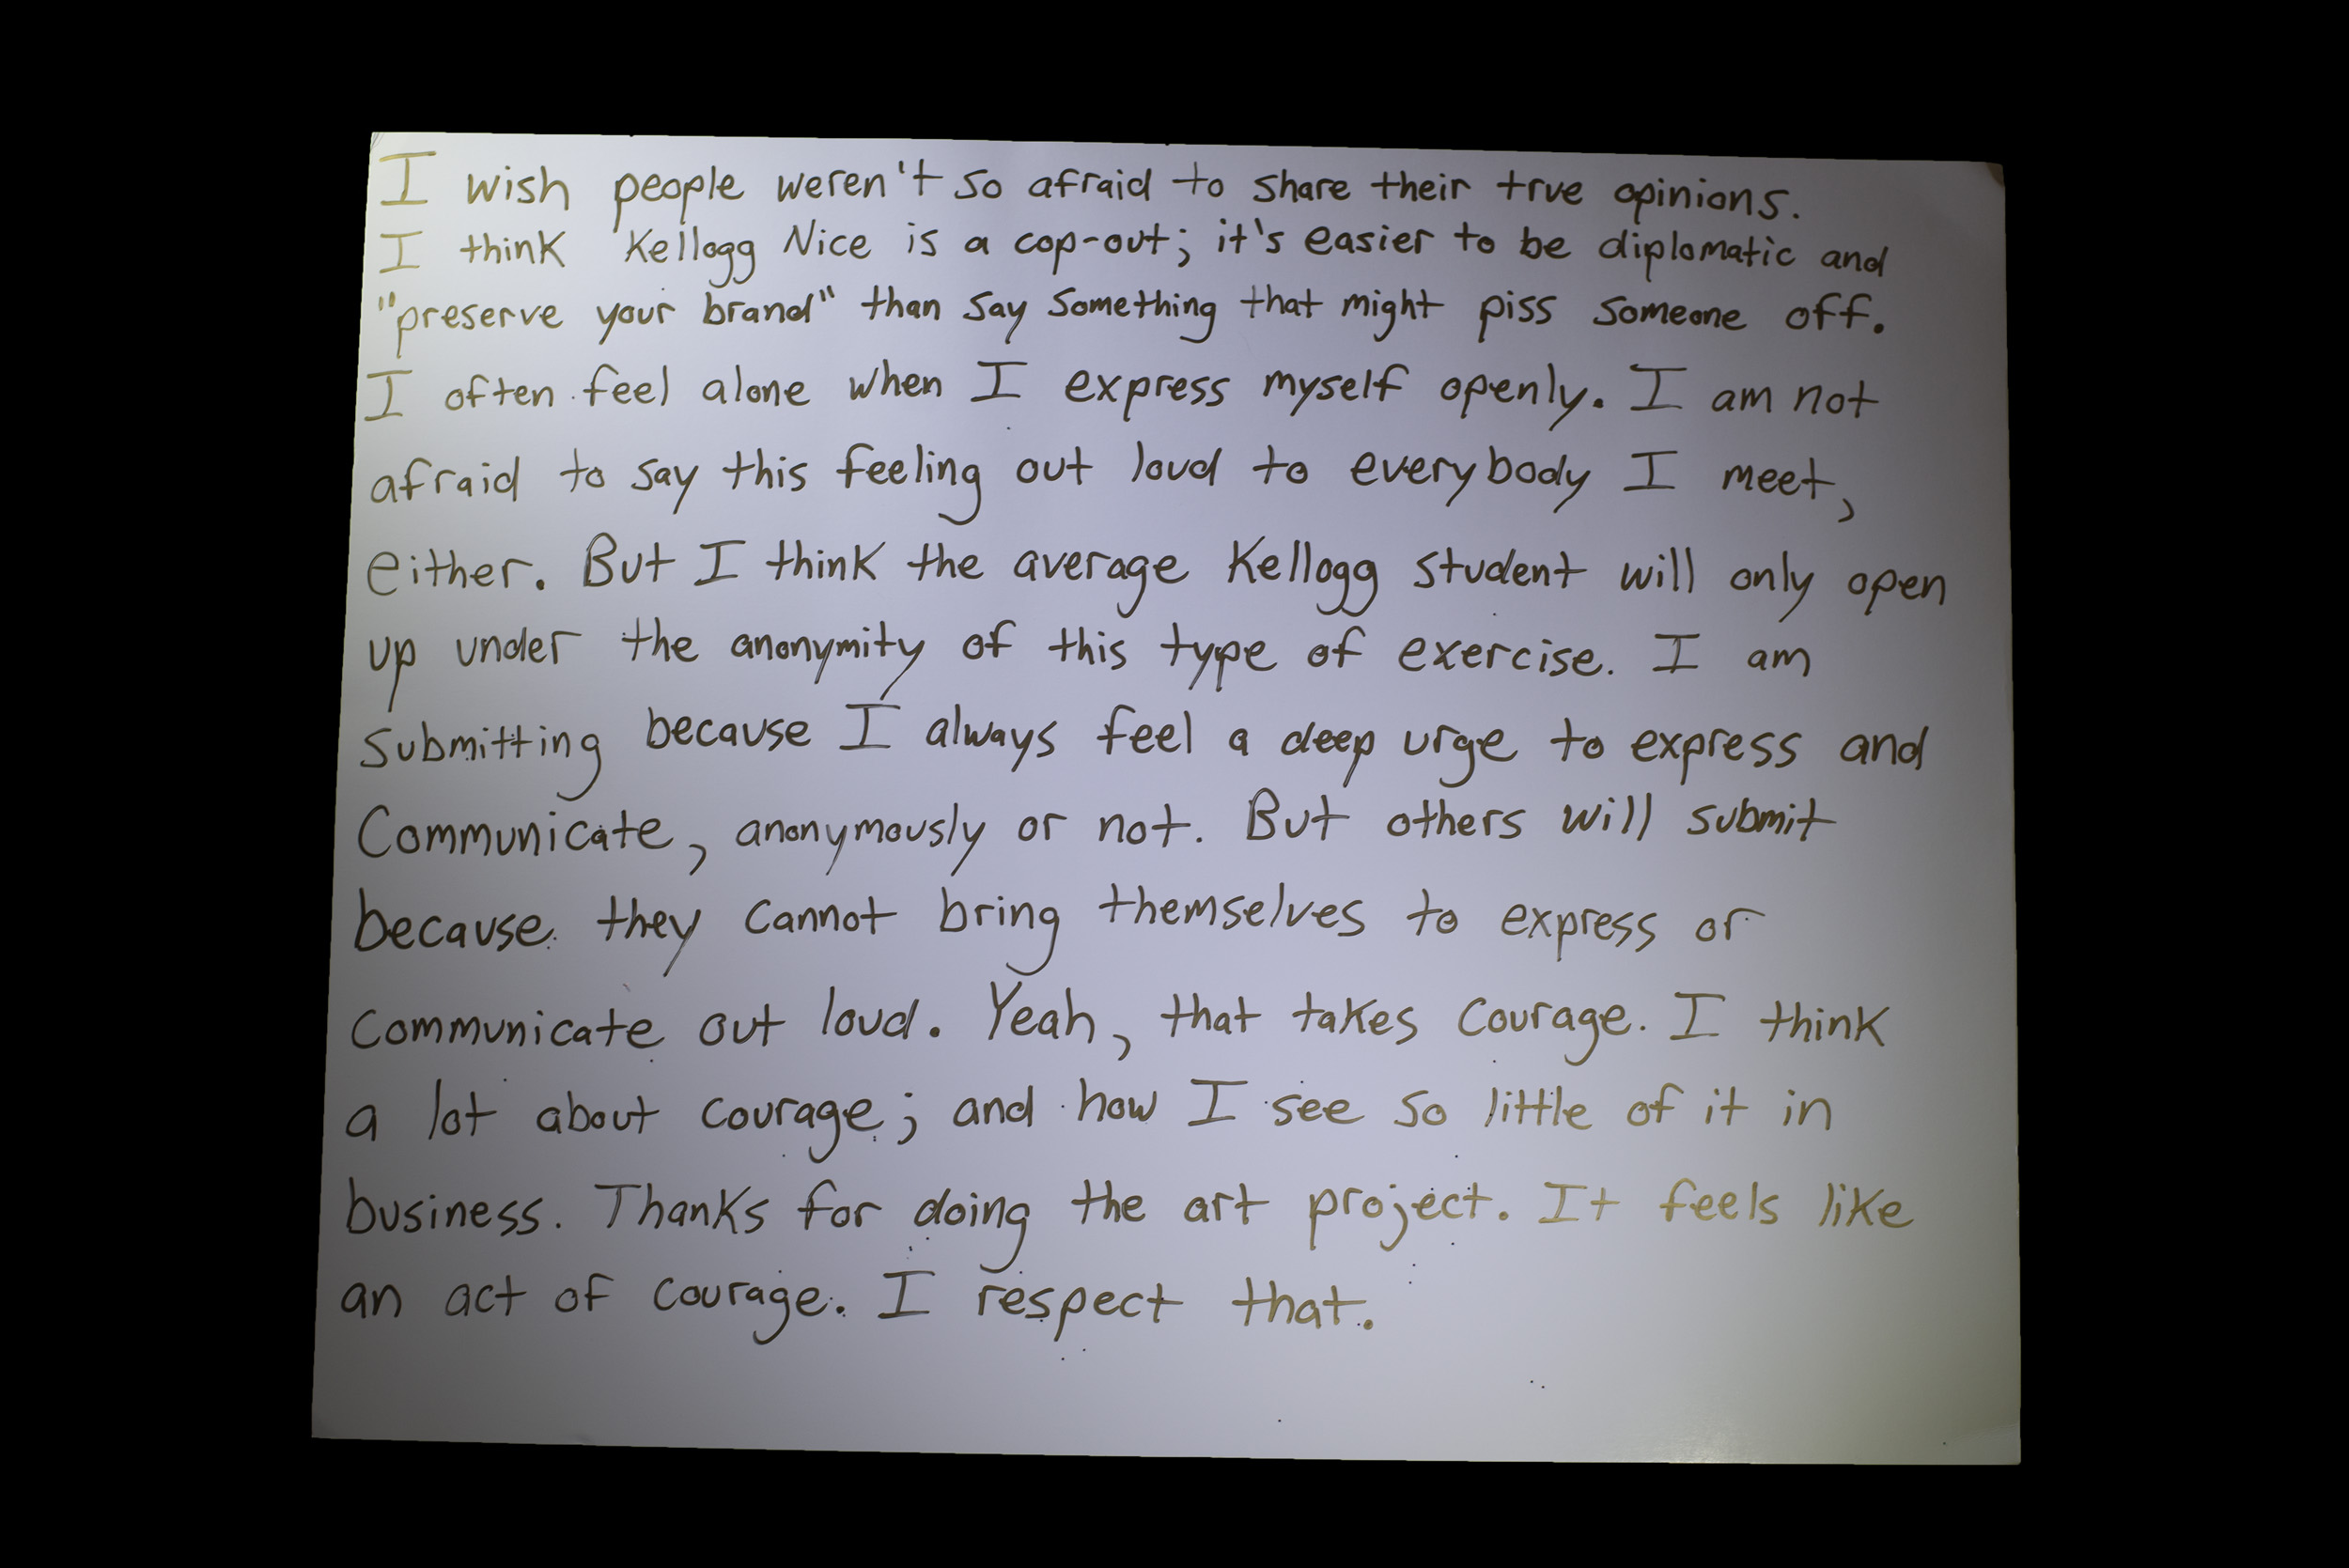 I wish people weren't so afraid to share their true opinions.
I think Kellogg Nice is a cop-out; it's easier to be diplomatic and
"preserve your brand" than say something that might piss someone off.
I often feel alone when I express myself openly. I am not
afraid to say this feeling out loud to everybody I meet,
either. But I think the average Kellogg student will only open
up under the anonymity of this type of exercise. I am
submitting because I always feel a deep urge to express and
Communicate, anonymously or not. But others will submit
because they cannot bring themselves to express or
communicate out loud. Yeah, that takes courage. I think
a lot about courage; and how I see so little of it in
business. Thanks for doing the art project. It feels like
an act of courage. I respect that.